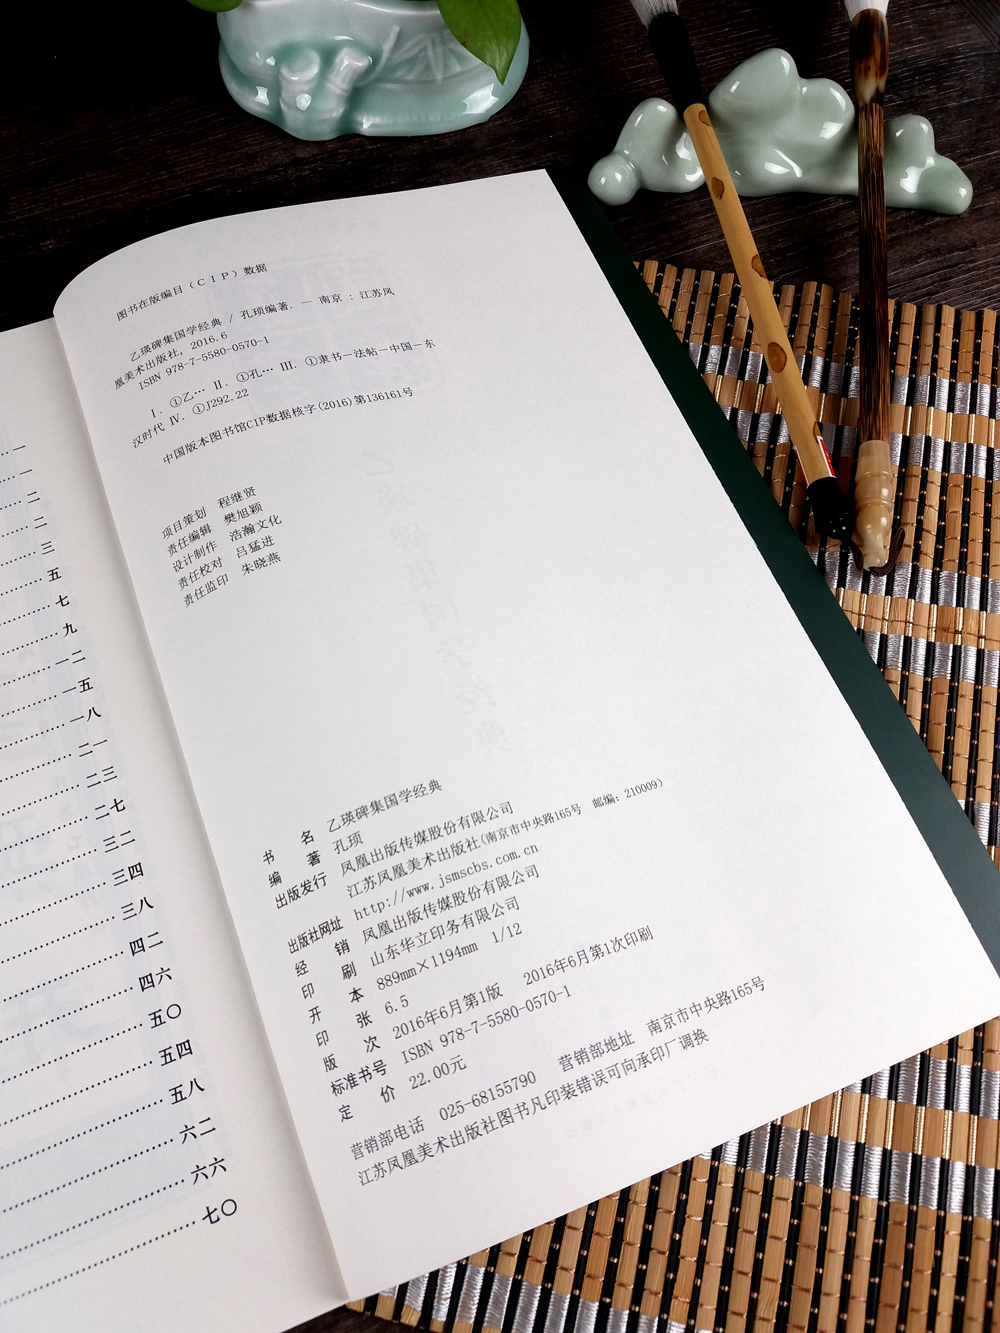 一
一
二
二
三
五
七
九
一二
一五
一八
二一
二三
二七
三二
三四
三八
四二
四六
五〇
五四
五八
六二
六六
七〇
图书在版编目(CIP)数据
乙瑛碑集国学经典 / 孔顼编著. — 南京 : 江苏凤
凰美术出版社, 2016.6
ISBN 978-7-5580-0570-1
Ⅰ. ①乙… Ⅱ. ①孔… Ⅲ. ①隶书-法帖-中国-东
汉时代 Ⅳ. ①J292.22
中国版本图书馆CIP数据核字(2016)第136161号
项目策划 程继贤
责任编辑 樊旭颖
设计制作 浩瀚文化
责任校对 吕猛进
责任监印 朱晓燕
书名 乙瑛碑集国学经典
编著 孔顼
出版发行 凤凰出版传媒股份有限公司
江苏凤凰美术出版社(南京市中央路165号 邮编: 210009)
出版社网址 http://www.jsmscbs.com.cn
经销 凤凰出版传媒股份有限公司
印刷 山东华立印务有限公司
开本 889mm×1194mm 1/12
印张 6.5
版次 2016年6月第1版 2016年6月第1次印刷
标准书号 ISBN 978-7-5580-0570-1
定价 22.00元
营销部电话 025-68155790 营销部地址 南京市中央路165号
江苏凤凰美术出版社图书凡印装错误可向承印厂调换